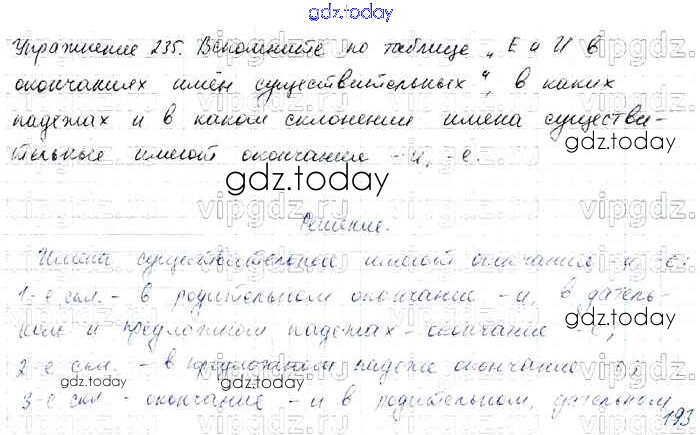 gdz.today
Упражнение 235. Вспомните по таблице „Е и И в
окончаниях имён существительных", в каких
падежах и в каком склонении имена существи-
тельные имеют окончания -и, -е.
gdz.today
Решение.
Имена существительные имеют окончание -и -е:
1-е скл. - в родительном окончание -и, в датель-
ном и предложном падежах - окончание -е;
2-е скл. - в предложном падеже окончание
gdz.today
gdz.today
3-е скл - окончание -и в родительном, дательном
193